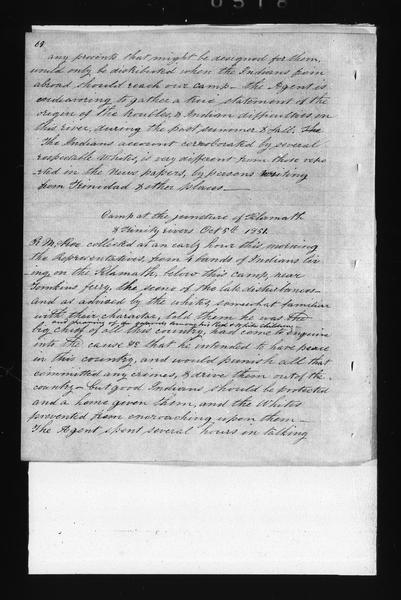 68
any presents that might be designed for them,
would only be distributed when the Indians from
abroad should reach our camp - the Agent is
endeavoring to gather a true statement of the
origin of the troubles, & Indian difficulties on
this river, during the past summer & fall. The
The Indians account corroborated by several
respectable Whites, is very different from those repo
rted in the News papers, by persons writing
from Trinidad & other places -
Camp at the juncture of Klamath
& Trinity rivers Oct 5th 1851.
R. McKee collected at an early hour this morning
the Representatives, from 4 bands of Indians liv
ing on the Klamath, below this camp, near
Tomkins ferry, the scene of the late disturbances -
and as advised by the whites, somewhat familiar
with their character, told them he was the
big chief of all this country, had come to enquire
into the cause &c that he intended to have peace
in this country, and would punish all that
committed any crimes, & drive them out of the
country - but good Indians, should be protected
and a home given them, and the Whites
prevented from encroaching upon them -
The Agent spent several hours in talking